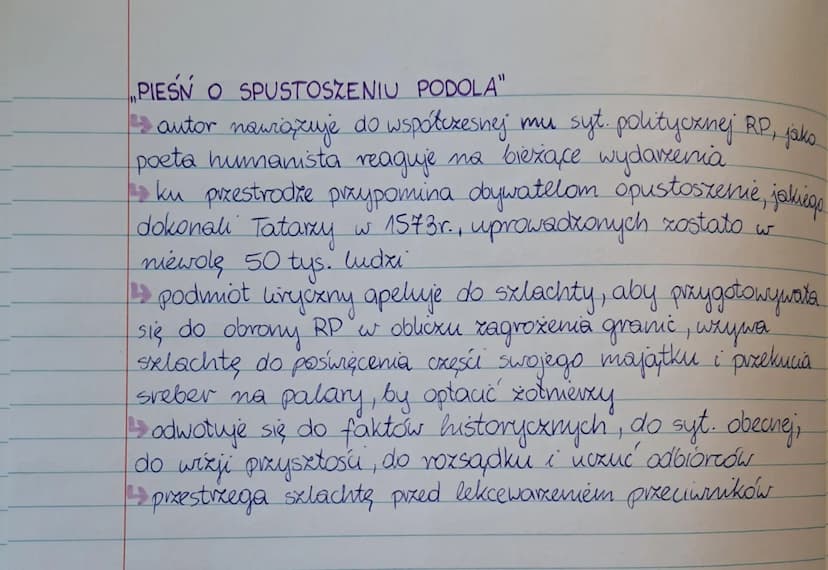 „PIEŚŃ O SPUSTOSZENIU PODOLA"
↳ autor nawiązuje do współczesnej mu syt. politycznej RP, jako
poeta humanista reaguje na bieżące wydarzenia
↳ ku przestrodze przypomina obywatelom opustoszenie, jakiego
dokonali Tatarzy w 1573r., uprowadzonych zostało w
niewolę 50 tys. ludzi
↳ podmiot liryczny apeluje do szlachty, aby przygotowywała
się do obrony RP w obliczu zagrożenia granic, wzywa
szlachtę do poświęcenia części swojego majątku i przekucia
sreber na palary, by opłacić żołnierzy
↳ odwołuje się do faktów historycznych, do syt. obecnej,
do wizji przyszłości, do rozsądku i uczuć odbiorców
↳ przestrzega szlachtę przed lekceważeniem przeciwników